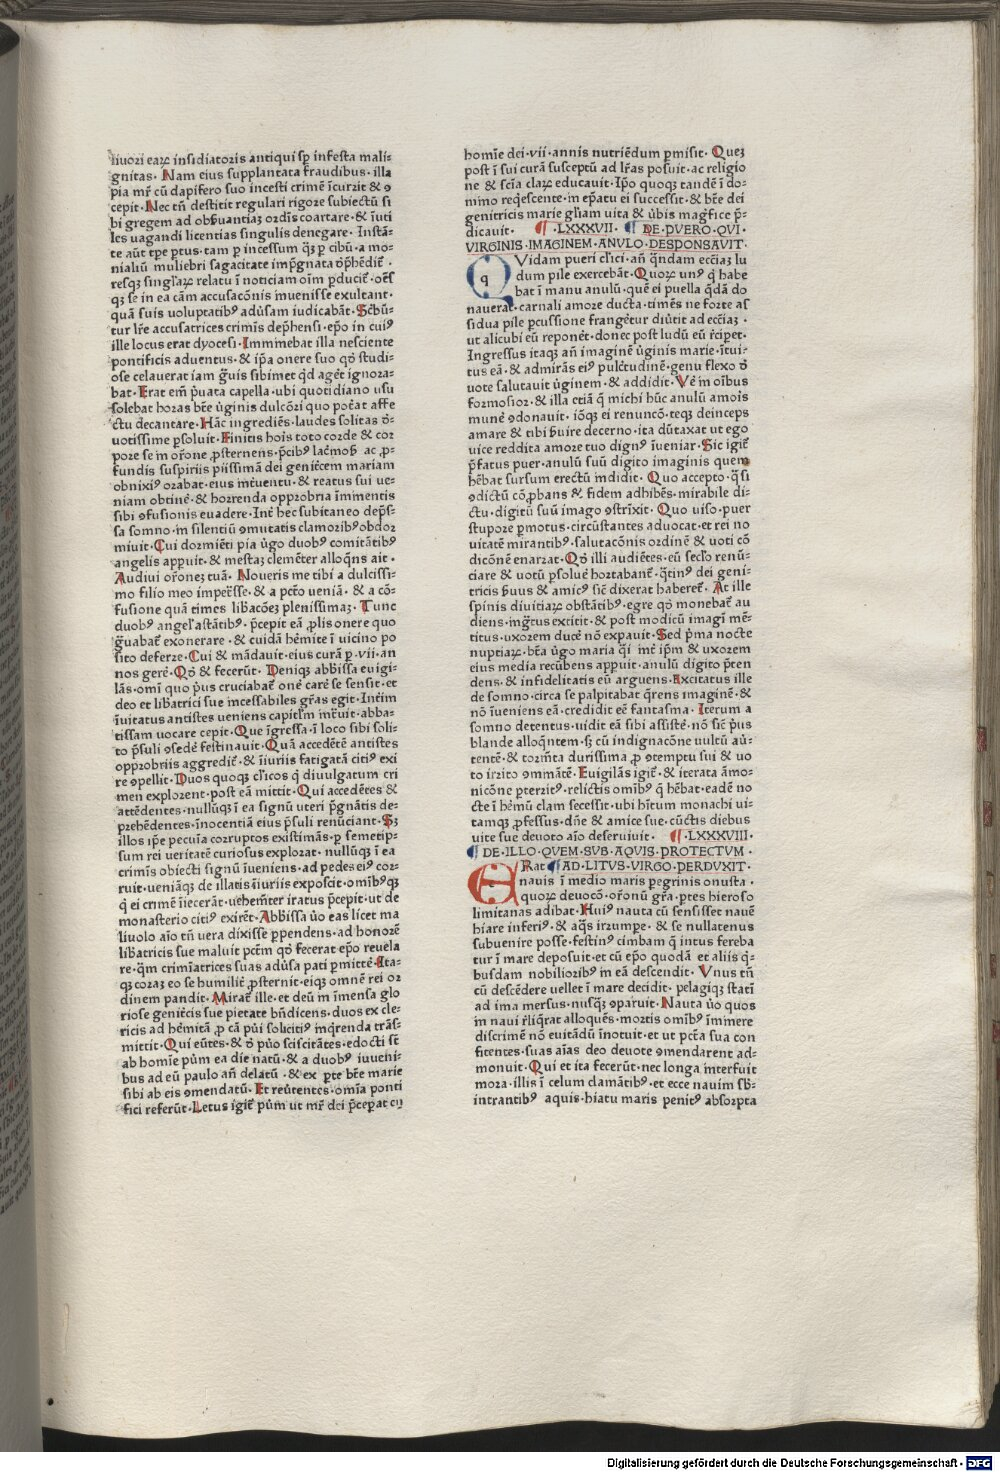 liuori eaꝝ insidiatoris antiqui sꝑ infesta mali⸗
gnitas · Nam eius supplantata fraudibus · illa
pia mr̄ cū dapifero suo incesti crimē īcurrit & ꝯ
cepit · Nec tn̄ destitit regulari rigore subiectū si
bi gregem ad obẜuantiaꝫ ordīs coartare · & īuti
les uagandi licentias singulis denegare · Instā⸗
te aūt tꝑe ꝑtus · tam ꝑ incessum qꝫ ꝑ cibū · a mo⸗
nialiū muliebri sagacitate imp̄gnata dp̄hēdit̄ ·
resqꝫ singl'aꝝ relatu ī noticiam oīm ꝑducit̄ · oēs
qꝫ se in ea cām accusacōnis īuenisse exultant ·
quā suis uoluptatibꝰ adūsam iudicabāt · Scbū⸗
tur lr̄e accusatrices crimīs dep̄hensi · ep̄o in cuiꝰ
ille locus erat dyocesi · Imminebat illa nesciente
pontificis aduentus · & ip̄a onere suo qđ studi⸗
ose celauerat iam g̃uis sibimet qđ aget̄ ignora⸗
bat · Erat em̄ p̄uata capella · ubi quotidiano usu
solebat horas bt̄e ūginis dulcōri quo pot̄at affe
ctu decantare · Hāc ingrediēs · laudes solitas d̄⸗
uotissime ꝑsoluit · Finitis hoīs toto corde & cor
pore se in or̄one ꝓsternens · p̄cibꝰ lac̄mosꝭ ac ꝓ⸗
fundis suspiriis piissimā dei genit̄cem mariam
obnixiꝰ orabat · eius int̄uentu · & reatus sui ue⸗
niam obtinē · & horrenda opprobria īmmentis
sibi ꝯfusionis euadere · Int̄ hec subitaneo dep̄s⸗
sa somno · in silentiū ꝯmutatis clamoribꝰ obdor
miuit · Cui dormiēti pia ūgo duobꝰ comitātibꝰ
angelis appuit · & mestaꝫ clemēter alloqn̄s ait ·
Audiui or̄onēꝫ tuā · Noueris me tibi a dulcissi⸗
mo filio meo impet̄sse · & a pct̄o ueniā · & a cō⸗
fusione quā times lib̄acōeꝫ plenissimaꝫ · Tunc
duobꝰ angel' astātibꝰ · p̄cepit eā ꝓlis onere quo
g̃uabat̄ exonerare · & cuidā hēmite ī uicino po
sito deferre · Cui & mādauit · eius curā ꝑ · vii · an
nos gerē · Qđ & fecerūt · Deniqꝫ abb̄issa euigi⸗
lās · omī quo p̄us cruciabat̄ onē carē se sensit · et
deo et libatrici sue incessabiles gr̄as egit · Int̄im
īuitatus antistes ueniens capitl'm int̄uit · abba⸗
tissam uocare cepit · Que īgressa · ī loco sibi soli⸗
to p̄suli ꝯsedē festinauit · Quā accedētē antistes
opprobriis aggredit̄ · & īiuriis fatigatā citiꝰ exi
re ꝯpellit · Duos quoqꝫ cl'icos q̄ diuulgatum cri
men explorent · post eā mittit · Qui accedētes &
attēdentes · nullūqꝫ ī ea signū uteri p̄gnātis de⸗
prehēdentes · īnocentiā eius p̄suli renūciant · Sꝫ
illos ip̄e pecuīa corruptos existimās · ꝑ semetip⸗
sum rei ueritatē curiosus explorat · nullūqꝫ ī ea
crimīs obiecti signū īueniens · ad pedes eiꝰ cor⸗
ruit · ueniāqꝫ de illatis īiuriis exposcit · omībꝰqꝫ
q̄ ei crimē īiecerāt · uehemēter iratus p̄cepit · ut de
monasterio citiꝰ exirēt · Abbissa ūo eas licet ma
liuolo aīo tn̄ uera dixisse ꝑpendens · ad honorē
lib̄atricis sue maluit pct̄m qđ fecerat ep̄o reuela
re · q̄m crimīatrices suas adūsa pati ꝑmittē · Ita⸗
qꝫ coraꝫ eo se humilit̄ ꝓsternit · eiqꝫ omnē rei or
dinem pandit · Mirat̄ ille · et deū in īmensa glo
riose genit̄cis sue pietate bn̄dicens · duos ex cle⸗
ricis ad hēmitā ꝓ cā pūi solicitiꝰ inq̄renda trās⸗
mittit · Qui eūtes · & d̄ pūo sciscitātes · edocti st̄
ab homīe pūm ea die natū · & a duobꝰ iuueni⸗
bus ad eū paulo añ delatū · & ex ꝑte bt̄e marie
sibi ab eis ꝯmendatū · Et reūtentes · omīa ponti
fici referūt · Letus igit̄ pūm ut mr̄ dei p̄ceꝑat cū
homīe dei · vii · annis nutriēdum ꝑmisit · Queꝫ
post ī sui curā susceptū ad lr̄as posuit · ac religio
ne & scīa claꝝ educauit · Ip̄o quoqꝫ tandē ī do⸗
mino req̄escente · in ep̄atu ei successit · & bt̄e dei
genitricis marie gl'iam uita & ūbis magf̄ice p̄⸗
dicauit · ¶ · LXXXVII · ¶ DE · PVERO · QVI ·
VIRGINIS · IMAGINEM · ANVLO · DESPONSAVIT ·
QVidam pueri cl'ici · añ q̄ndam ecc̄iaꝫ lu
dum pile exercebāt · Quoꝝ unꝰ q̄ habe
bat ī manu anulū · quē ei puella q̄dā do
nauerat · carnali amore ducta · timēs ne forte as
sidua pile ꝑcussione frangēt̄ur · diūtit ad ecc̄iaꝫ ·
ut alicubi eū reponēt · donec post ludū eū r̄ciꝑet ·
Ingressus itaqꝫ añ imaginē ūginis marie · ītui⸗
tus eā · & admirās eiꝰ pulc̄tudinē · genu flexo d̄
uote salutauit ūginem · & addidit · Vē in oībus
formosior · & illa etiā q̄ michi hūc anulū amoīs
munē ꝯdonauit · iōqꝫ ei renuncō · teqꝫ deinceps
amare & tibi ẜuire decerno · ita dūtaxat ut ego
uice reddita amore tuo dignꝰ īueniar · Sic igit̄
p̄fatus puer · anulū suū digito imaginis quem
hēbat sursum erectū īndidit · Quo accepto · q̄si
ꝯdictū cōꝓbans & fidem adhibēs · mirabile di⸗
ctu · digitū suū imago ꝯstrīxit · Quo uiso · puer
stupore ꝑmotus · circūstantes aduocat · et rei no
uitatē mirantibꝰ · salutacōnis ordinē & uoti cō
dicōnē enarrat · Qđ illi audiētes · eū secl'o renū⸗
ciare & uotū ꝑsoluē hortabant̄ · q̄tinꝰ dei geni⸗
tricis ẜuus & amicꝰ sic̄ dixerat haberet̄ · At ille
spinis diuitiaꝝ obstātibꝰ · egre qđ monebat̄ au
diens · ingr̄tus extitit · & post modicū imagī mē⸗
titus · uxorem ducē nō expauit · Sed p̄ma nocte
nuptiaꝝ · bt̄a ūgo maria q̄si int̄ ip̄m & uxorem
eius media recūbens appuit · anulū digito p̄ten
dens · & infidelitatis eū arguens · Axcitatus ille
de somno · circa se palpitabat q̄rens imaginē · &
nō īueniens eā · credidit eē fantasma · Iterum a
somno detentus · uidit eā sibi assistē · nō sic̄ p̄us
blande alloqn̄tem · sꝫ cū indignacōne uultū aū⸗
tentē · & torm̄ta durissima ꝓ ꝯtemptu sui & uo
to irrito ꝯmmātē · Euigilās igit̄ · & iterata āmo⸗
nicōne ꝑterritꝰ · relictis omībꝰ q̄ hēbat · eadē no
cte ī hēmū clam secessit · ubi hītum monachi ui⸗
tamqꝫ ꝓfessus · dn̄e & amice sue · cūctis diebus
uite sue deuoto aīo deseruiuit · ¶ · LXXXVIII ·
¶ DE · ILLO · QVEM · SVB · AQVIS · PROTECTVM ·
ERat ¶ AD · LITVS · VIRGO · PERDVXIT ·
nauis ī medio maris ꝑegrinis onusta ·
quoꝝ deuocō · or̄onū gr̄a · ꝑtes hieroso
limitanas adibat · Huiꝰ nauta cū sensisset nauē
hiare inferiꝰ · & aq̄s irrumpe · & se nullatenus
subuenire posse · festinꝰ cimbam q̄ intus fereba
tur ī mare deposuit · et cū ep̄o quodā et aliis q̄⸗
busdam nobilioribꝰ in eā descendit · Vnus tn̄
cū descēdere uellet ī mare decidit · pelagiqꝫ statī
ad ima mersus · nusq̄ꝫ ꝯparuit · Nauta ūo quos
in naui r̄liq̄rat alloquēs · mortis omībꝰ īmīnere
discrimē nō euitādū īnotuit · et ut pct̄a sua con
fitentes · suas aīas deo deuote ꝯmendarent ad⸗
monuit · Qui et ita fecerūt · nec longa interfuit
mora · illis ī celum clamātibꝰ · et ecce nauim sb̄⸗
intrantibꝰ aquis · hiatu maris penitꝰ absorpta
Digitalisierung gefördert durch die Deutsche Forschungsgemeinschaft · DFG